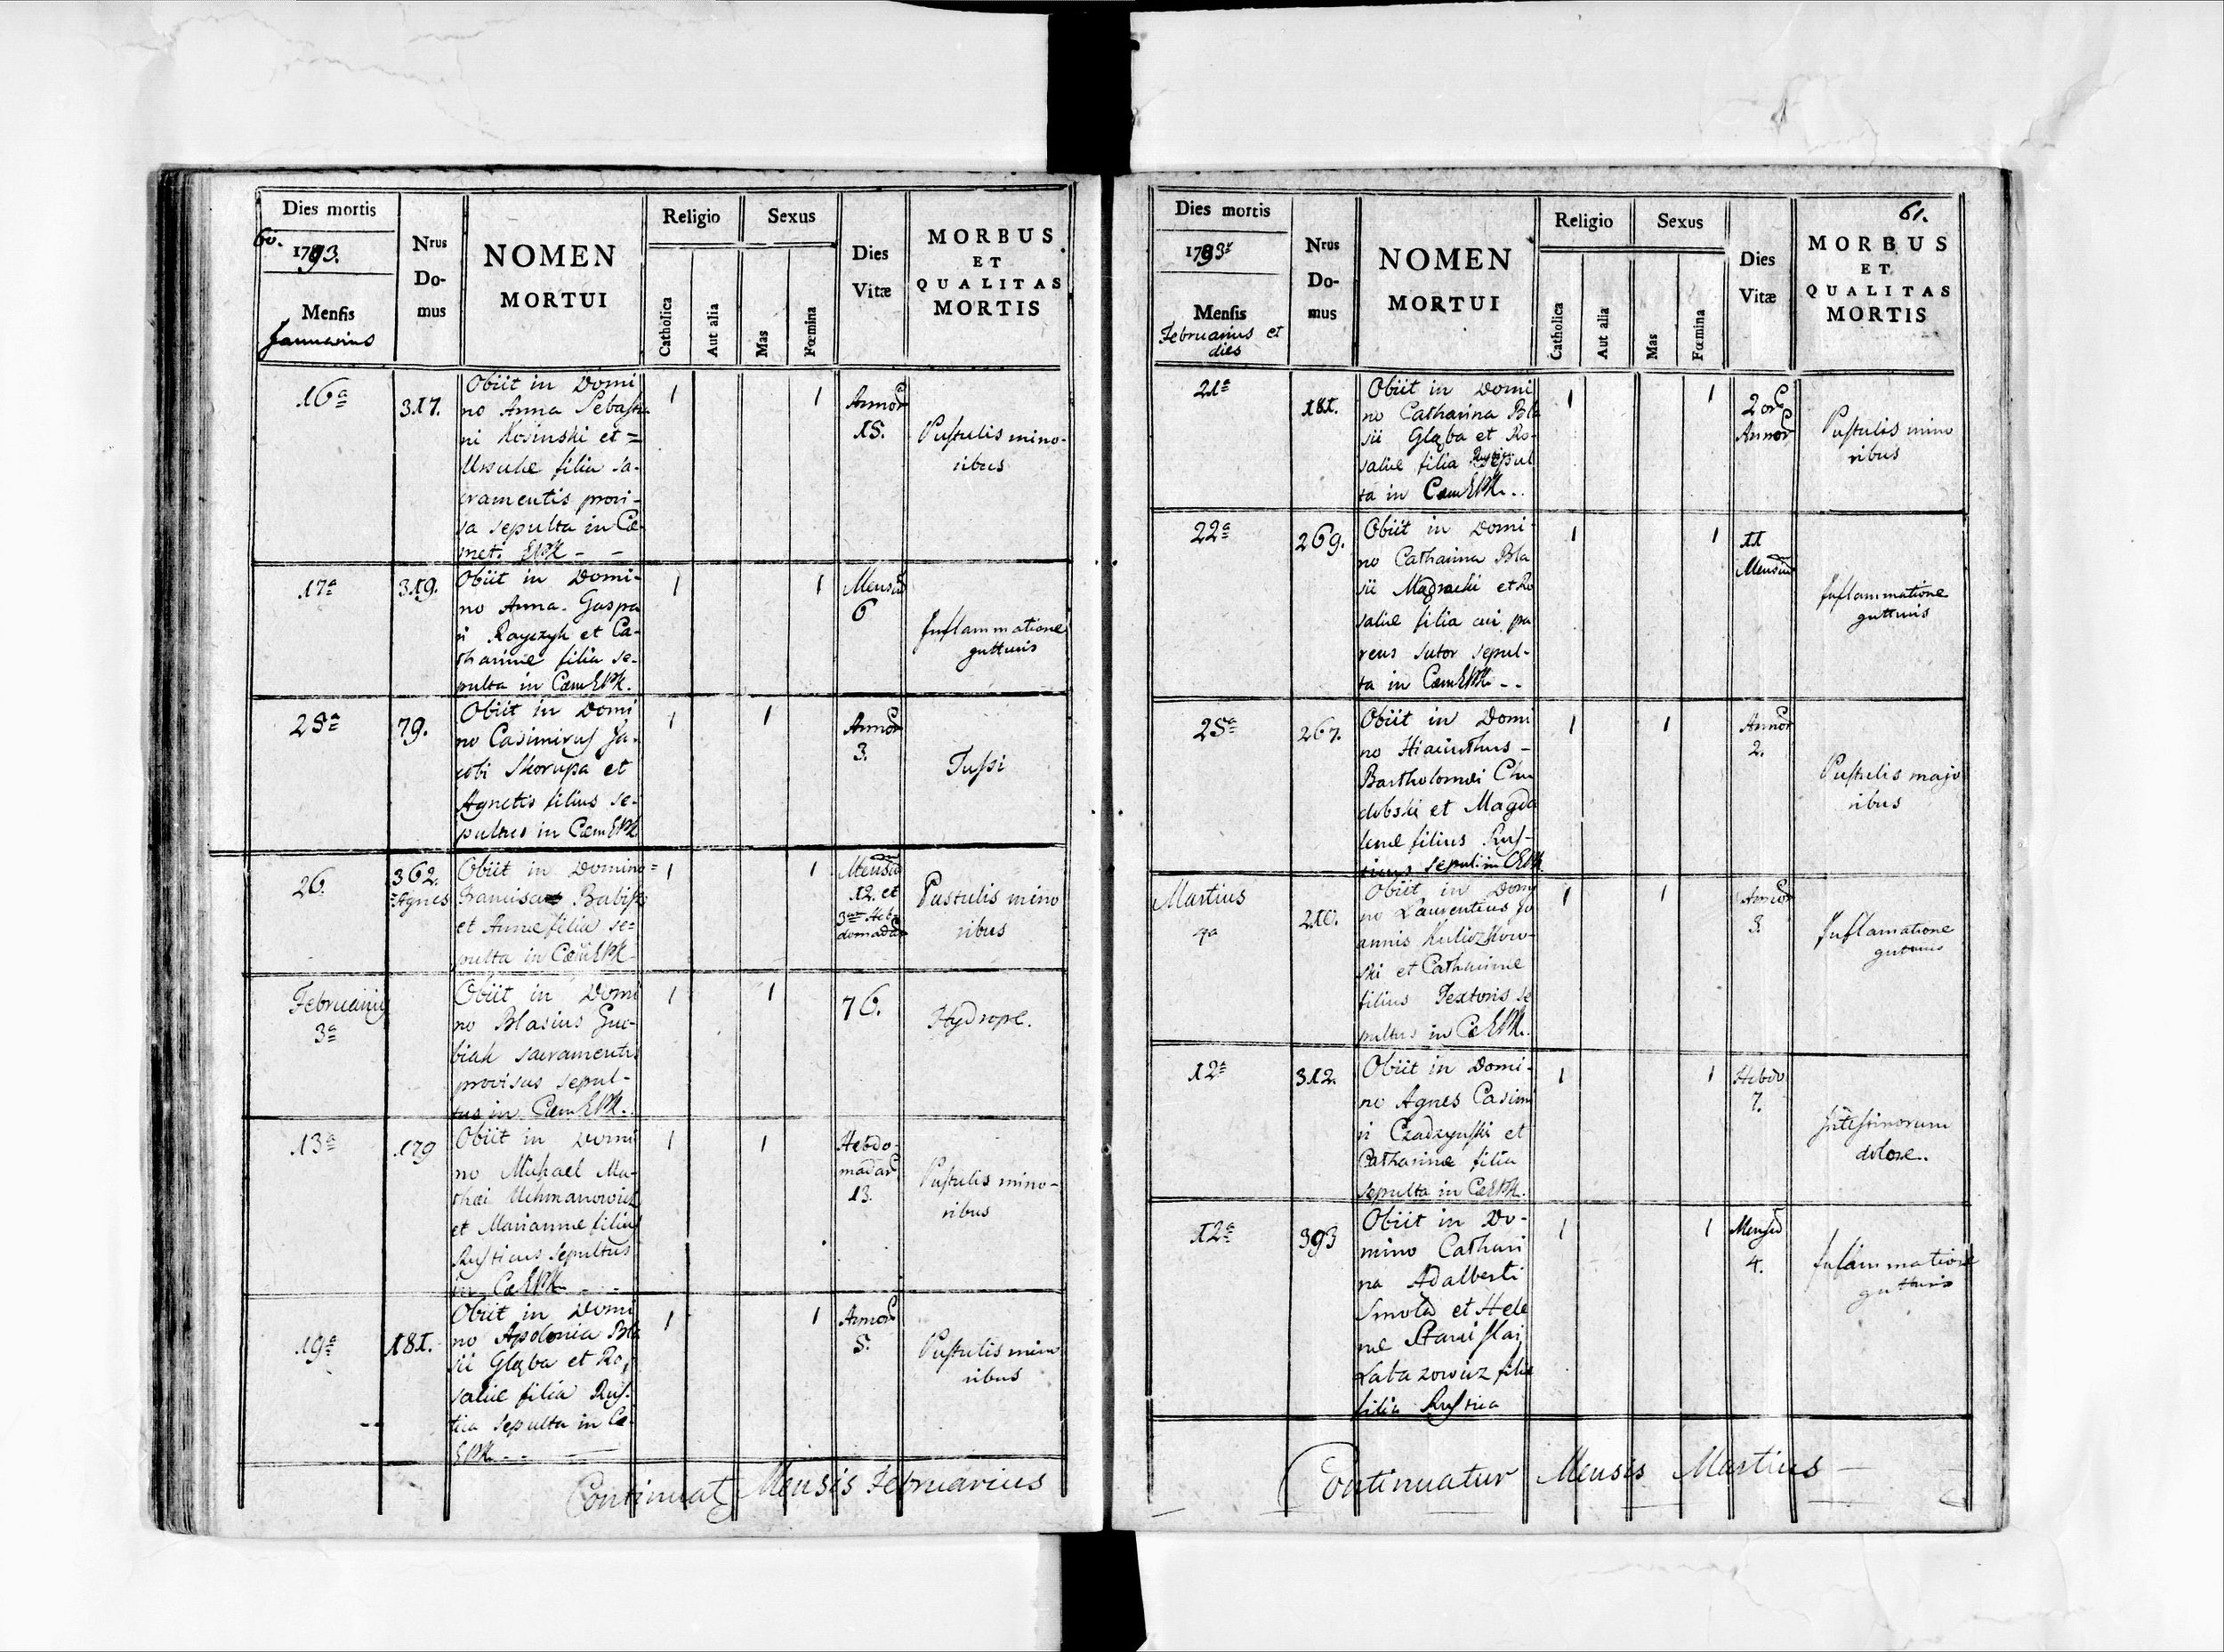 60.
Dies mortis
1793.
Mensis
Januarius
Nrus
Do-
mus
NOMEN
MORTUI
Religio
Catholica
Aut alia
Sexus
Mas
Fœmina
Dies
Vitæ
MORBUS
ET
QUALITAS
MORTIS
16a
317.
Obiit in Domi
no Anna Sebastia
ni Kosinski et =
Ursulæ filia sa-
cramentis provi-
sa sepulta in Cæ-
met. EPK - -
1
1
Annor
15.
Pustulis mino-
ribus
17a
319.
Obiit in Domi-
no Anna Gaspa
ri Rayczyk et Ca-
tharinæ filia se-
pulta in Cæm EPK.
1
1
Mensiu
6
Inflammatione
gutturis
25a
79.
Obiit in Domi
no Casimirus Ja-
cobi Skorupa et
Agnetis filius se-
pultus in Cæm EPK
1
1
Annor
3.
Tussi
26.
362.
Agnes
Obiit in Domino =
et Annæ filia se=
pulta in Cæm EPK
1
1
Mensiu
12. et
3um Heb-
domadar
Pustulis mino
ribus
Februarius
3a
Obiit in Domi
no Blasius Gno-
biak sacramentis
provisus sepul-
tus in Cæm EPK.
1
1
76.
Hydrope.
13a
179
Obiit in Domi
no Michael Ma-
thæi Uchmanowicz
et Mariannæ filius
Rusticus sepultus
in Cæ EPK - -
1
1
Hebdo-
madar
13.
Pustulis mino-
ribus
19a
181.
Obiit in Domi
no Apolonia Bla
sii Głąba et Ro-
saliæ filia Rus-
tica sepulta in Cæ-
EPK - -
1
1
Annor
5.
Pustulis mino
ribus
Continuat Mensis Februarius
61.
Dies mortis
1793
Mensis
Februarius et
dies
Nrus
Do-
mus
NOMEN
MORTUI
Religio
Catholica
Aut alia
Sexus
Mas
Fœmina
Dies
Vitæ
MORBUS
ET
QUALITAS
MORTIS
21a
181.
Obiit in Domi
no Catharina Bla
sii Głąba et Ro-
saliæ filia sepul
ta in Cæm EPK..
1
1
2 or
Annor
Pustulis mino
ribus
22a
269.
Obiit in Domi-
no Catharina Bla
sii Mądracki et Ro
saliæ filia cui pa
rens sutor sepul-
ta in Cæm EPK - -
1
1
11
Mensiu
Inflammatione
gutturis
25a
267.
Obiit in Domi
no Hiacinthus -
Bartholomæi Chu
dobski et Magda
lenæ filius Rus-
ticus sepul. in CEPK
1
1
Annor
2.
Pustulis majo
ribus
Martius
7a
210.
Obiit in Domi
no Laurentius Jo
annis
ski et Catharinæ
filius Textoris se
pultus in Cæ EPK.
1
1
Annor
3.
Inflamatione
gutturis
12a
312.
Obiit in Domi-
no Agnes Casimi
ri Czadzynski et
Catharinæ filia
sepulta in Cæ EPK.
1
1
Hebdo
7.
Intestinorum
dolore..
12a
393
Obiit in Do-
mino Cathari
na Adalberti
Smoła et Hele
næ Stanislai
Łabazowicz filiæ
filia Rustica
1
1
Mensiu
4.
Inflammatione
gutturis
Continuatur Mensis Martius -